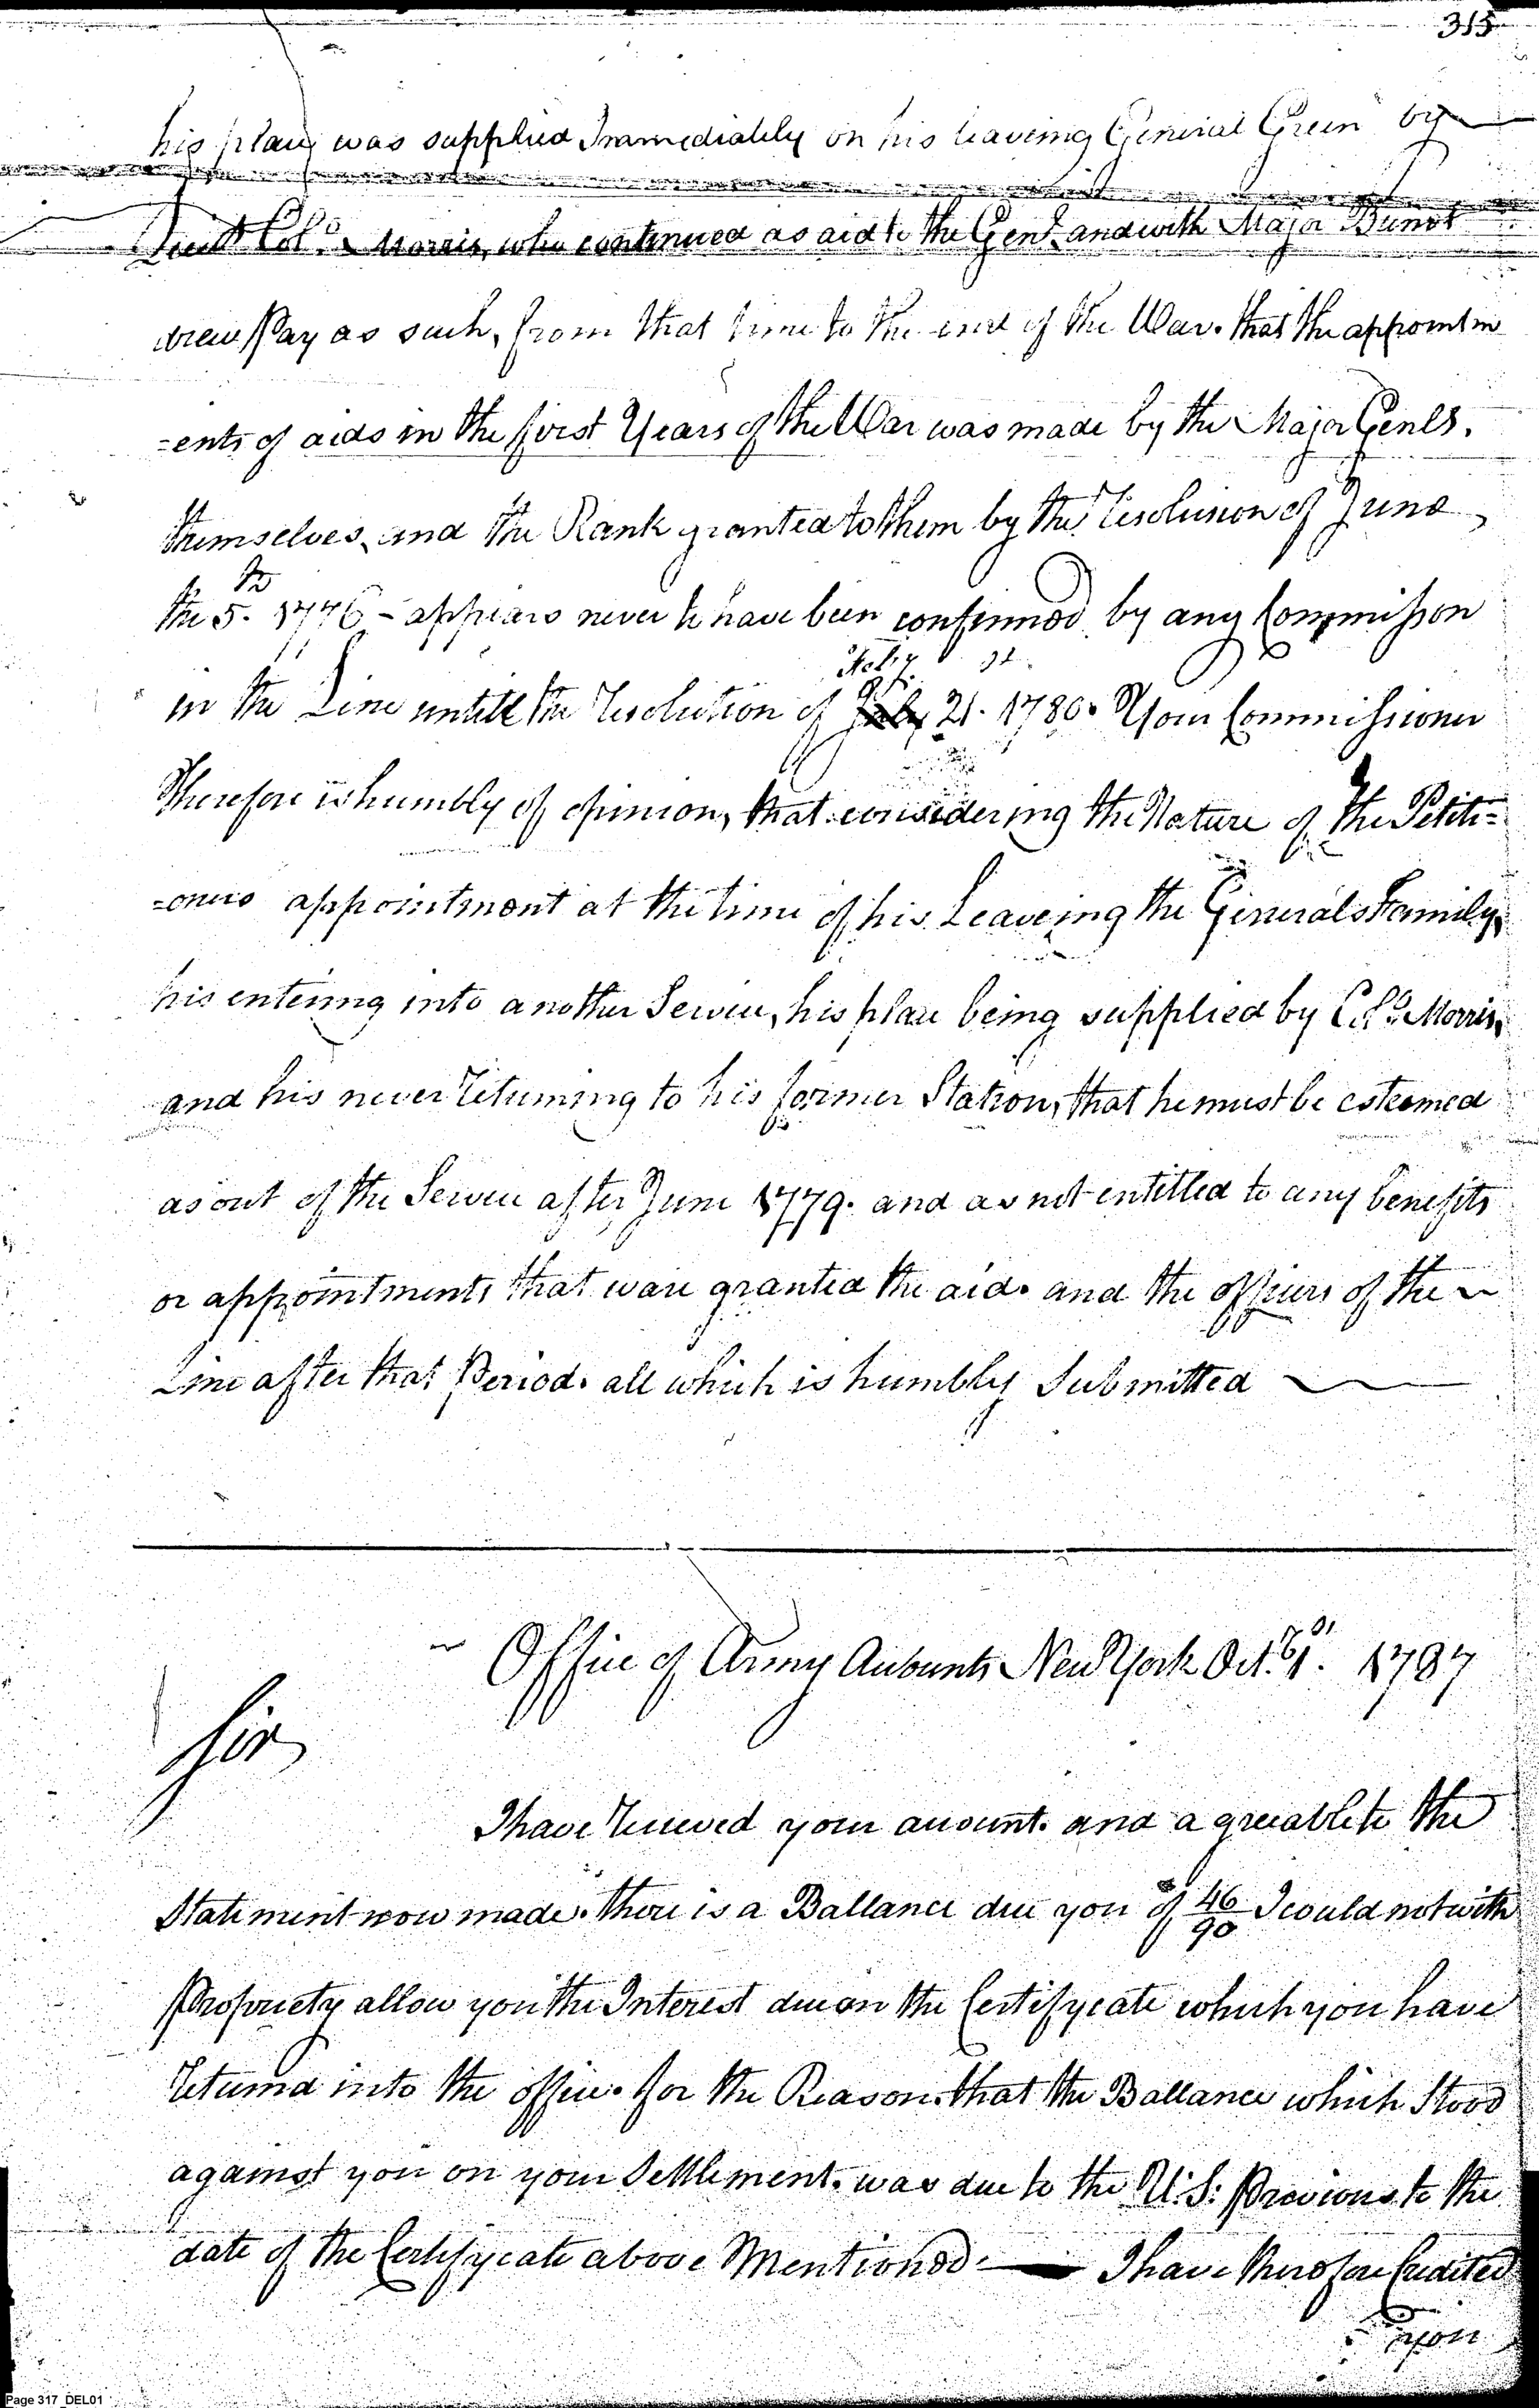 315
his place was supplied Immediately on his leaveing General Green by
Lieut Colo. Morris, who continued as aid to the Genl. and with Major Burnet
drew Pay as such, from that time to the end of the War. that the appointm
-ents of aids in the first Years of the War was made by the Major Genls.
themselves, and the Rank granted to them by the resolution of June
the 5.th 1776 - appears never to have been confirmed by any Commission
Feby. st
in the Line untill the resolution of July 21. 1780. Your Commissioner
Therefore is humbly of opinion, that considering the Nature of the Petiti=
=oners appointment at the time of his Leaveing the Generals Family,
his entering into another Service, his place being supplied by Colo. Morris,
and his never returning to his former Station, that he must be esteemed
as out of the Service after June 1779. and as not entitled to any benefits
or appointments that ware granted the aids and the officers of the
Line after that Period. all which is humbly Submitted
Office of Army Accounts New York Oct. 1787
Sir
I have received your account. and agreeable to the
Statement now made. there is a Ballance due you of 46/90 I could not with
Propriety allow you the Interest due on the Certifycate which you have
returnd into the office. for the Reason. that the Ballance which Stood
against you on your Settlement. was due to the U.S: Previous to the
date of the Certifycate above Mentioned. I have therefore Credited
you
Page 317_DEL01